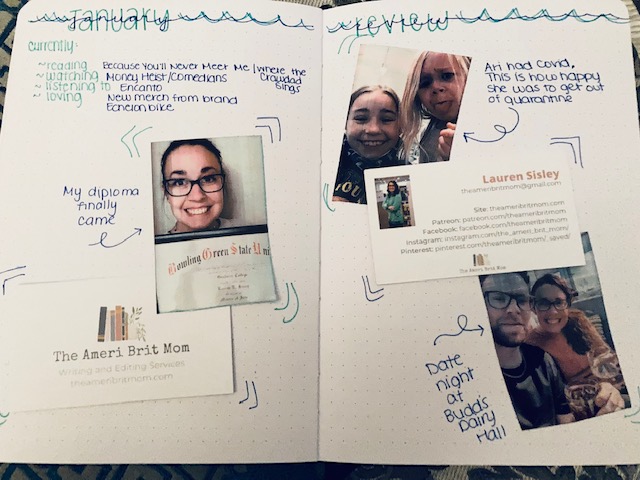 January
currently:
~reading Because You'll Never Meet Me/where the Crawdad Sings
~watching Money Heist/Comedians
~listening to Encanto
~loving New merch from brand
Echelon bike
My diploma
finally
came
Bowling Green State Uni
The Ameri Brit Mom
Writing and Editing Services
theameribritmom.com
review
Ari had Covid,
This is how happy
she was to get out
of quarantine
Lauren Sisley
theameribritmom@gmail.com
Site: theameribritmom.com
Patreon: patreon.com/theameribritmom
Facebook: facebook.com/theameribritmom
Instagram: instagram.com/the_ameri_brit_mom/
Pinterest: pinterest.com/theameribritmom/_saved/
The Ameri Brit Mom
Date
night
at
Budd's
Dairy
Hall